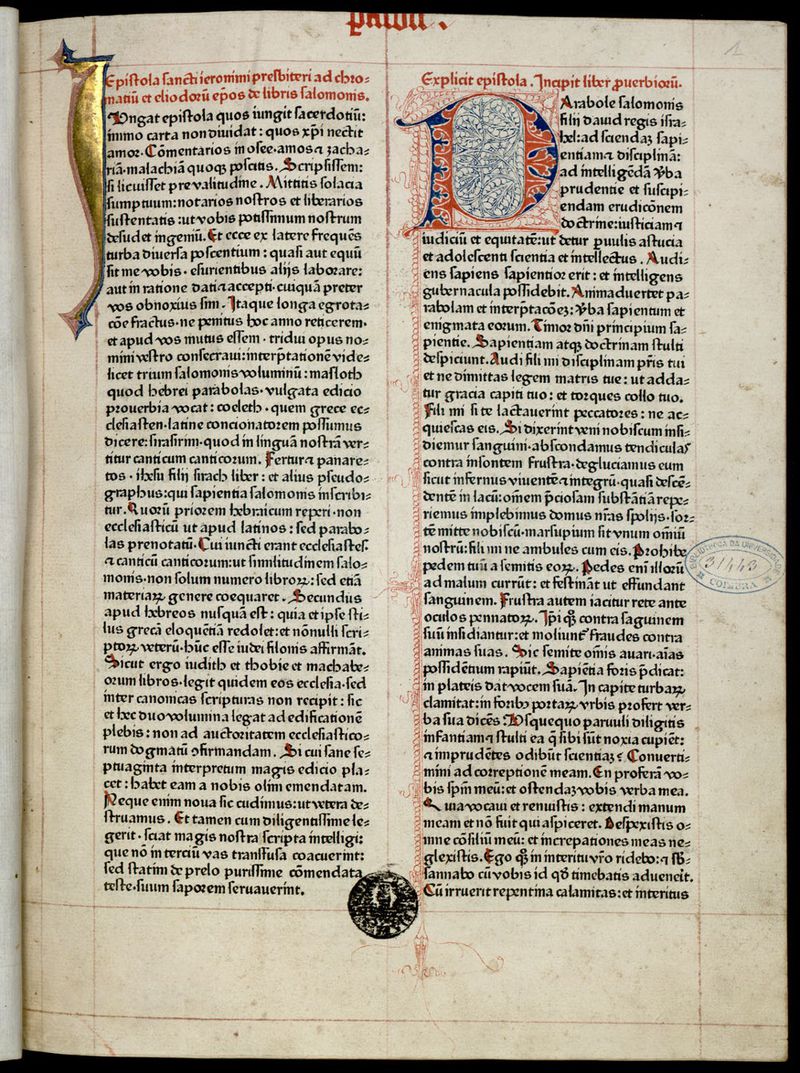 Epistola sancti ieronimi presbiteri ad chro⸗
matiū et eliodorū ep̄os de libris salomonis.
Vngat epistola quos iungit sacerdotiū:
immo carta non diuidat: quos xp̄i nectit
amor. Cōmentarios in osee.amos ⁊ zacha⸗
riā.malachiā quoqꝫ poscitis. Scripsissem:
si licuisset pre valitudine. Mittitis solacia
sumptuum: notarios nostros et librarios
sustentatis: ut vobis potissimum nostrum
desudet ingeniū. Et ecce ex latere frequēs
turba diuersa poscentium: quasi aut equū
sit me vobis . esurientibus alijs laborare:
aut in ratione dati ⁊ accepti. cuiquā preter
vos obnoxius sim. Itaque longa egrota⸗
cōe fractus.ne penitus hoc anno reticerem.
et apud vos mutus essem . tridui opus no⸗
mini vestro consecraui: interp̄tationē vide⸗
licet trium salomonis voluminū: masloth
quod hebrei parabolas . vulgata edicio
prouerbia vocat: coeleth . quem grece ec⸗
clesiasten.latine concionatorem possumus
dicere: sirasirim.quod in linguā nostrā ver⸗
titur canticum canticorum. Fertur ⁊ panare⸗
tos . ihesu filij sirach liber: et alius pseudo⸗
graphus: qui sapientia salomonis inscribi⸗
tur. Quorū priorem hebraicum reperi.non
ecclesiasticū ut apud latinos: sed parabo⸗
las prenotatū. Cui iuncti erant ecclesiastes.
⁊ canticū canticorum: ut similitudinem salo⸗
monis.non solum numero libroꝝ: sed etiā
materiaꝝ genere coequaret. Secundus
apud hebreos nusquā est: quia et ipse sti⸗
lus grecā eloquētiā redolet: et nōnulli scri⸗
ptoꝝ veterū. hūc esse iudei filonis affirmāt.
Sicut ergo iudith et thobie et machabe⸗
orum libros.legit quidem eos ecclesia.sed
inter canonicas scripturas non recipit: sic
et hec duo volumina legat ad edificationē
plebis: non ad auctoritatem ecclesiastico⸗
rum dogmatū ꝯfirmandam. Si cui sane se⸗
ptuaginta interpretum magis edicio pla⸗
cet: habet eam a nobis olim emendatam.
Neque enim noua sic cudimus: ut vetera de⸗
struamus. Et tamen cum diligentissime le⸗
gerit. sciat magis nostra scripta intelligi:
que nō in terciū vas transfusa coacuerint:
sed statim de prelo purissime cōmendata
teste.suum saporem seruauerint.
Explicit epistola. Incipit liber ꝓuerbiorū.
Arabole salomonis
filij dauid regis isra⸗
hel: ad sciendaꝫ sapi⸗
entiam ⁊ disciplinā:
ad intelligēdā v̄ba
prudentie et suscipi⸗
endam erudicōnem
doctrine: iusticiam ⁊
iudiciū et equitatē: ut detur ꝑuulis astucia
et adolescenti scientia et intellectus. Audi⸗
ens sapiens sapientior erit: et intelligens
gubernacula possidebit. Animaduertet pa⸗
rabolam et interp̄tacōeꝫ: v̄ba sapientum et
enigmata eorum. Timor dn̄i principium sa⸗
pientie. Sapientiam atqꝫ doctrinam stulti
despiciunt. Audi fili mi disciplinam pr̄is tui
et ne dimittas legem matris tue: ut adda⸗
tur gracia capiti tuo: et torques collo tuo.
Fili mi si te lactauerint peccatores: ne ac⸗
quiescas eis. Si dixerint veni nobiscum insi⸗
diemur sanguini.abscondamus tendiculas
contra insontem frustra.deglutiamus eum
sicut infernus viuentē ⁊ integrū.quasi descē⸗
dentē in lacū: om̄em p̄ciosam substātiā repe⸗
riemus implebimus domus nr̄as spolijs.sor⸗
tē mitte nobiscū.marsupium sit vnum om̄iū
nostrū: fili mi ne ambules cum eis. Prohibe
pedem tuū a semitis eoꝝ. Pedes eni illorū
ad malum currūt: et festināt ut effundant
sanguinem. Frustra autem iacitur rete ante
oculos pennatoꝝ. Ipi qꝫ contra saguinem
suū insidiantur: et moliunt᷑ fraudes contra
animas suas. Sic semite om̄is auari.aīas
possidētium rapiūt. Sapiētia foris p̄dicat:
in plateis dat vocem suā. In capite turbaꝝ
clamitat: in foribꝫ portaꝝ vrbis profert ver⸗
ba sua dicēs: Vsquequo paruuli diligitis
infantiam ⁊ stulti ea q̄ sibi sūt noxia cupiēt:
⁊ imprudētes odibūt scientiaꝫ? Conuerti⸗
mini ad correptionē meam. En proferā vo⸗
bis sp̄m meū: et ostendaꝫ vobis verba mea.
Quia vocaui et renuistis: extendi manum
meam et nō fuit qui aspiceret. Despexistis o⸗
mne cōsiliū meū: et increpationes meas ne⸗
glexistis. Ego qꝫ in interitu vr̄o ridebo: ⁊ sb̄⸗
sannabo cū vobis id qd̄ timebatis aduenerit.
Cū irruerit repentina calamitas: et interitus
BIBLIOTHECA DA UNIVERSIDADE
31443
COIMBRA
1